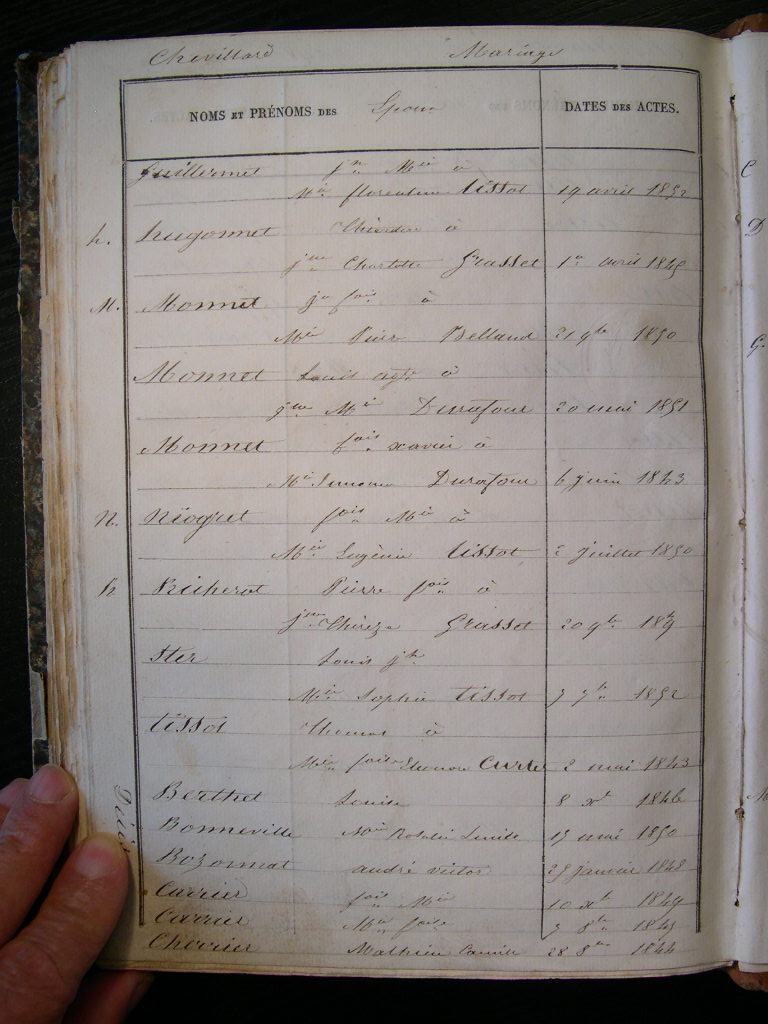 Chevillard Mariage
NOMS ET PRÉNOMS DES Epoux DATES DES ACTES.
Guillermet jn Mie à
Mie florentine tissot 19 avril 1852
h. hugonnet Théodore à
jne Charlotte Grasset 1er avril 1845
M. Monnet jh fois à
Mie Pier Belland 21 9bre 1850
Monnet Louis à
jne Mie Durafour 20 mai 1851
Monnet fois xavier à
Mie Durafour 6 juin 1843
N. Niogret fois Mie à
Mie Eugénie tissot 2 juillet 1850
Richerot Pierre fois à
jne Thérèze Grasset 20 9bre
Ster Louis jh
Mie Sophie tissot 7 7bre 1852
tissot Thomas à
Mie foise Eleonore Curte 2 mai 1843
Décès
Berthet Louise 8 xbre 1846
Bonneville Mie Rosalie 15 mai 1850
Bozonnat andré victor 25 janvier 1848
Carrier fois Mie 10 xbre 1849
Carrier Mie foise 7 8bre 1845
Chevrier Mathieu Camille 28 8bre 1844
C
D
G.